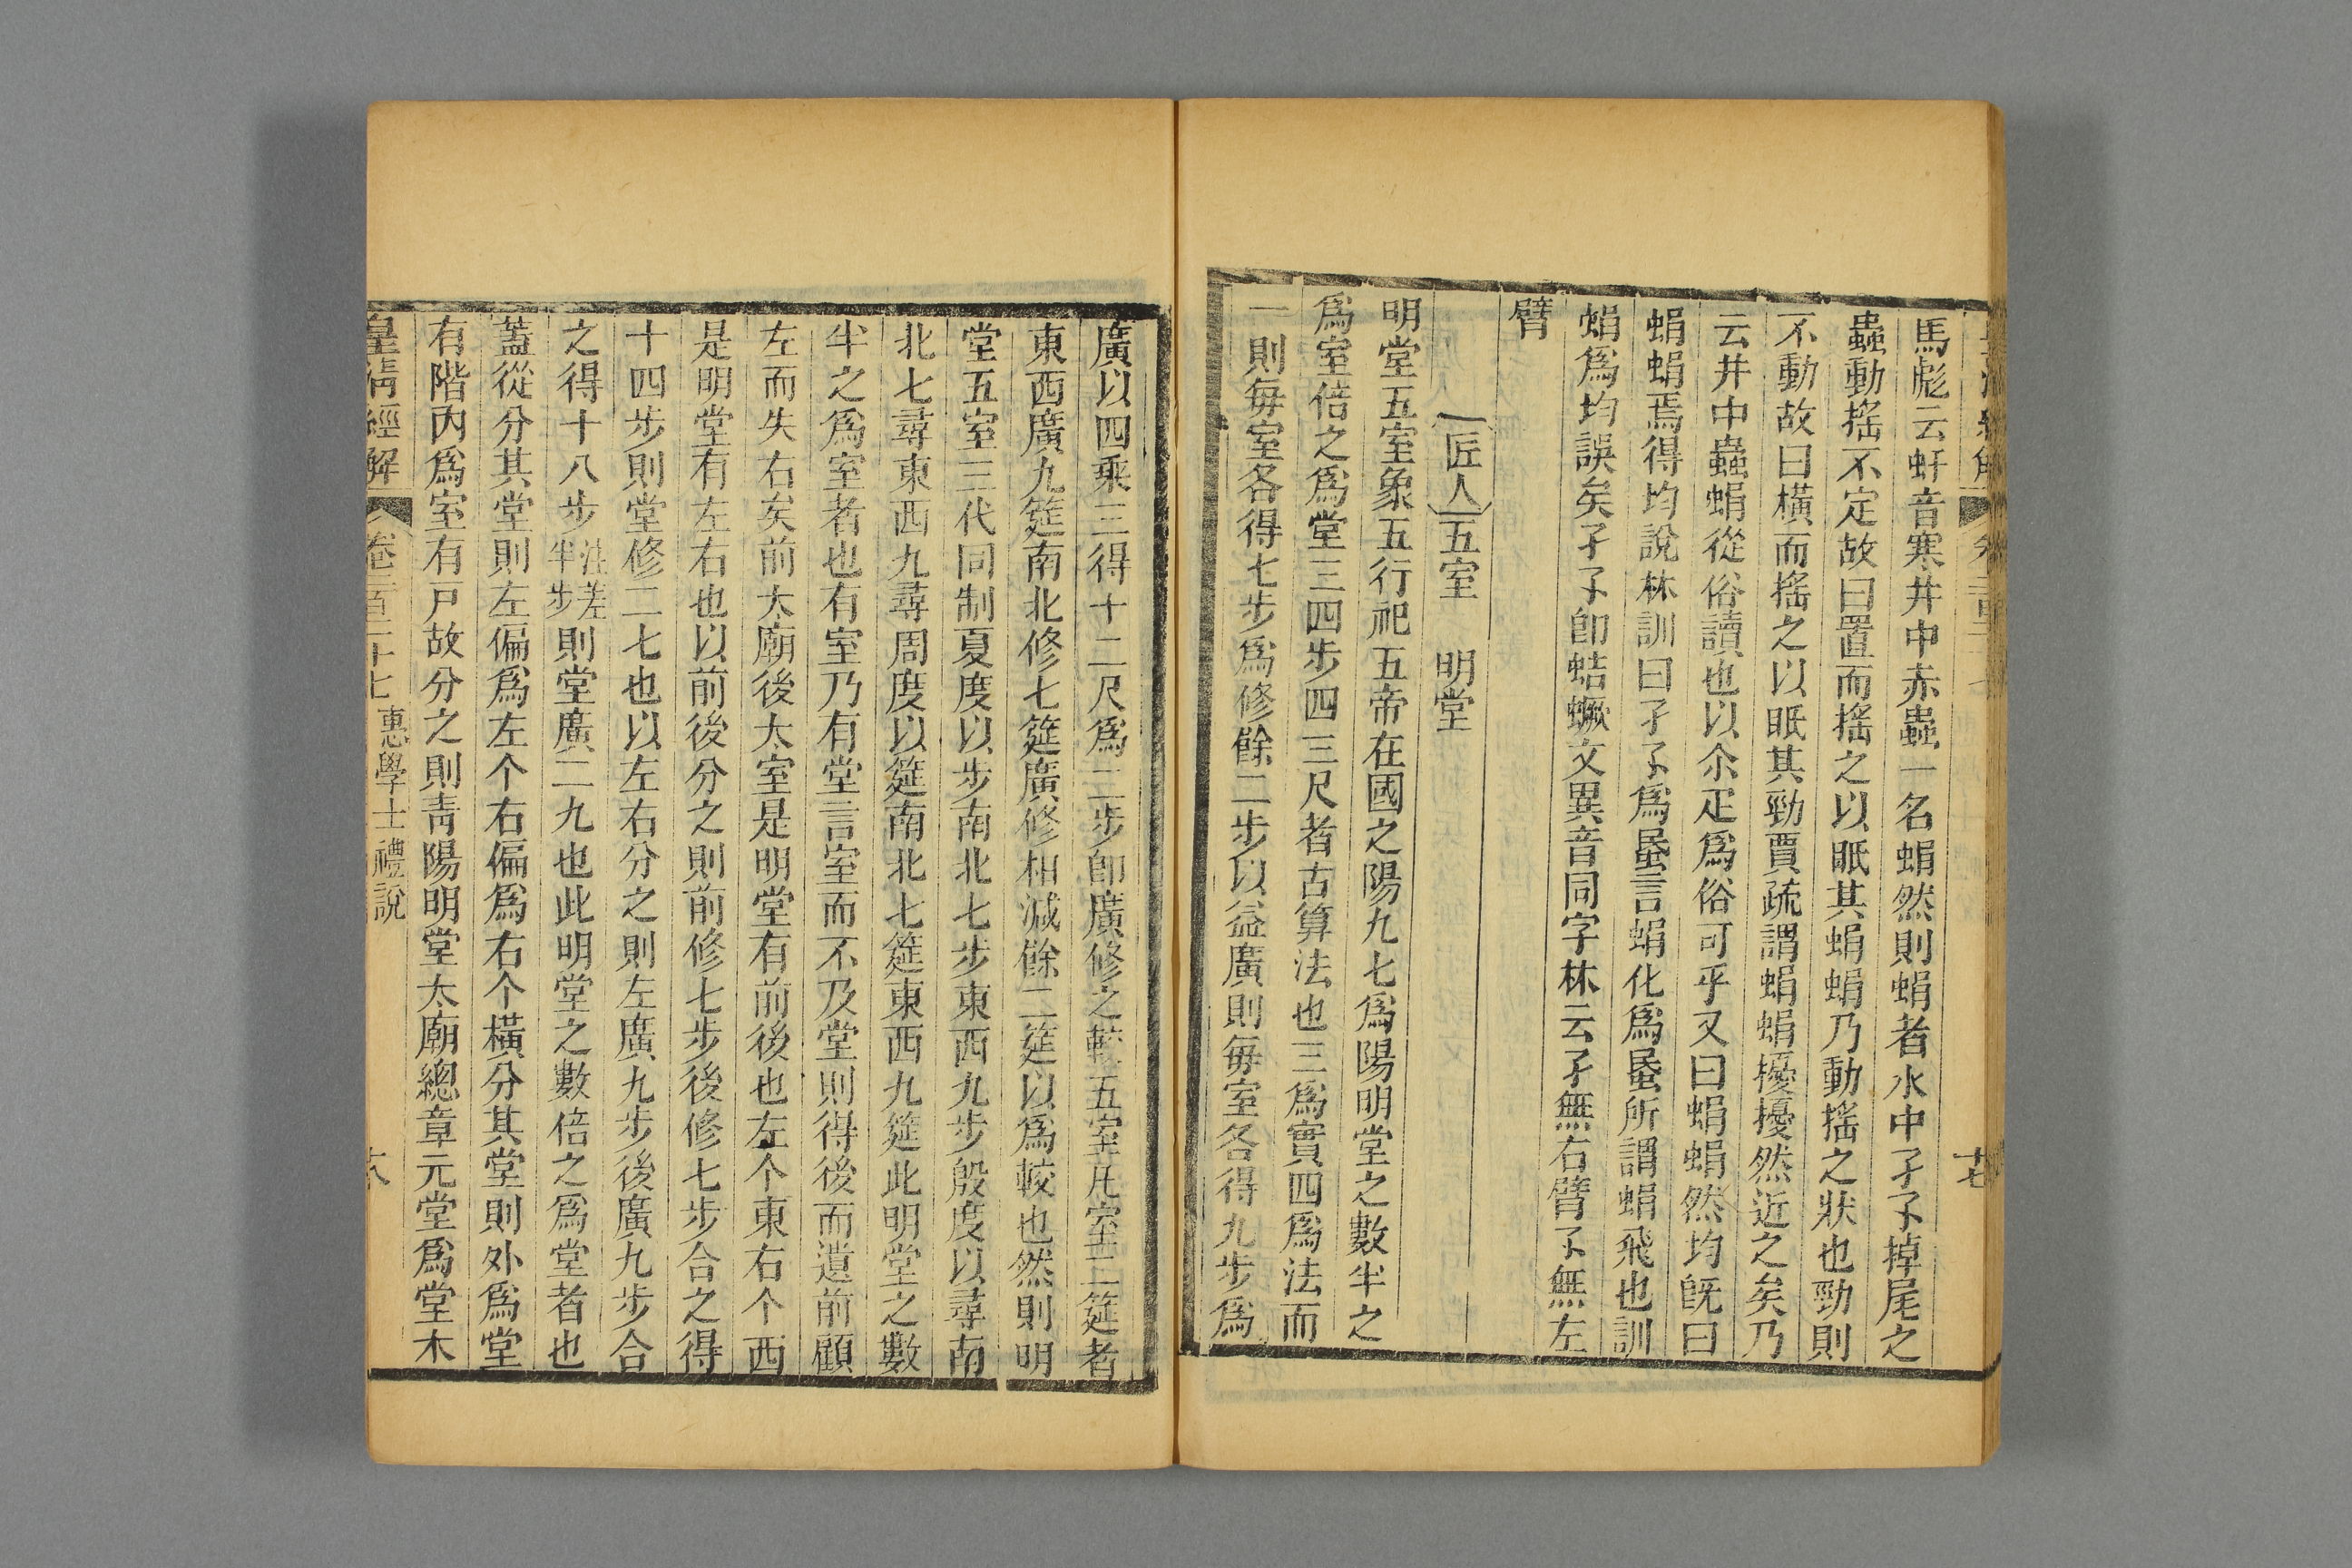 馬彪云虷音寒井中赤蟲一名蜎然則蜎者水中孑孓掉尾之
蟲動搖不定故曰置而搖之以眂其蜎蜎乃動搖之狀也勁則
不動故曰橫而搖之以眂其勁賈疏謂蜎蜎擾擾然近之矣乃
云井中蟲蜎從俗讀也以尒疋爲俗可乎又曰蜎蜎然均旣曰
蜎蜎焉得均說林訓曰孑孓爲蟁言蜎化爲蟁所謂蜎飛也訓
蜎爲均誤矣孑孓卽蛣蟩文異音同字林云孑無右臂孓無左
臂
匠人 五室 明堂
明堂五室象五行祀五帝在國之陽九七爲陽明堂之數半之
爲室倍之爲堂三四步四三尺者古算法也三爲實四爲法而
一則每室各得七步爲修餘二步以益廣則每室各得九步爲
廣以四乘三得十二尺爲二步卽廣修之較五室凡室二筵者
東西廣九筵南北修七筵廣修相減餘二筵以爲較也然則明
堂五室三代同制夏度以步南北七步東西九步殷度以尋南
北七尋東西九尋周度以筵南北七筵東西九筵此明堂之數
半之爲室者也有室乃有堂言室而不及堂則得後而遺前顧
左而失右矣前太廟後太室是明堂有前後也左个東右个西
是明堂有左右也以前後分之則前修七步後修七步合之得
十四步則堂修二七也以左右分之則左廣九步後廣九步合
之得十八步注差半步則堂廣二九也此明堂之數倍之爲堂者也
蓋從分其堂則左偏爲左个右偏爲右个橫分其堂則外爲堂
有階內爲室有戸故分之則靑陽明堂太廟總章元堂爲堂木
皇淸經解 卷二百二十七 惠學士禮說